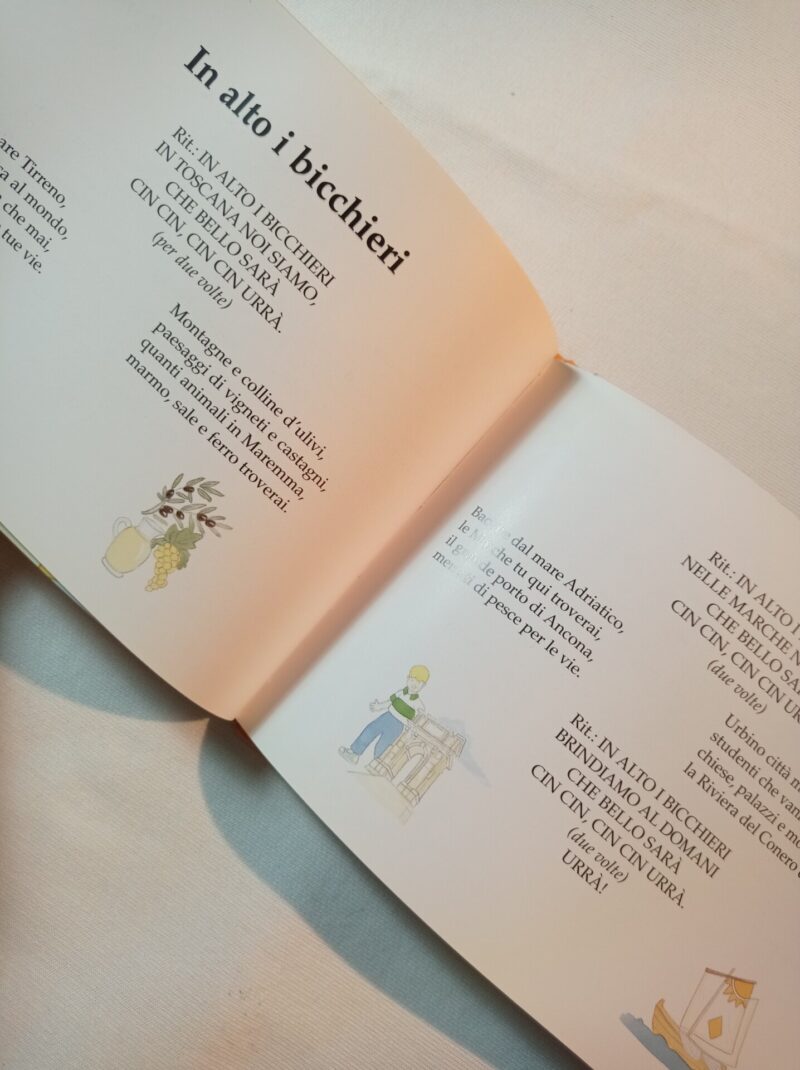 In alto i bicchieri
Tirreno,
al mondo,
che mai,
tue vie.
Rit.: IN ALTO I BICCHIERI
IN TOSCANA NOI SIAMO,
CHE BELLO SARÀ
CIN CIN, CIN CIN URRÀ.
(per due volte)
Montagne e colline d'ulivi,
paesaggi di vigneti e castagni,
quanti animali in Maremma,
marmo, sale e ferro troverai.
dal mare Adriatico,
le Marche tu qui troverai,
il grande porto di Ancona,
di pesce per le vie.
Rit.: IN ALTO I
NELLE MARCHE
CHE BELLO
CIN CIN, CIN CIN
(due volte)
Urbino città
studenti che
chiese, palazzi e
la Riviera del Conero
Rit.: IN ALTO I BICCHIERI
BRINDIAMO AL DOMANI
CHE BELLO SARÀ
CIN CIN, CIN CIN URRÀ.
(due volte)
URRÀ!